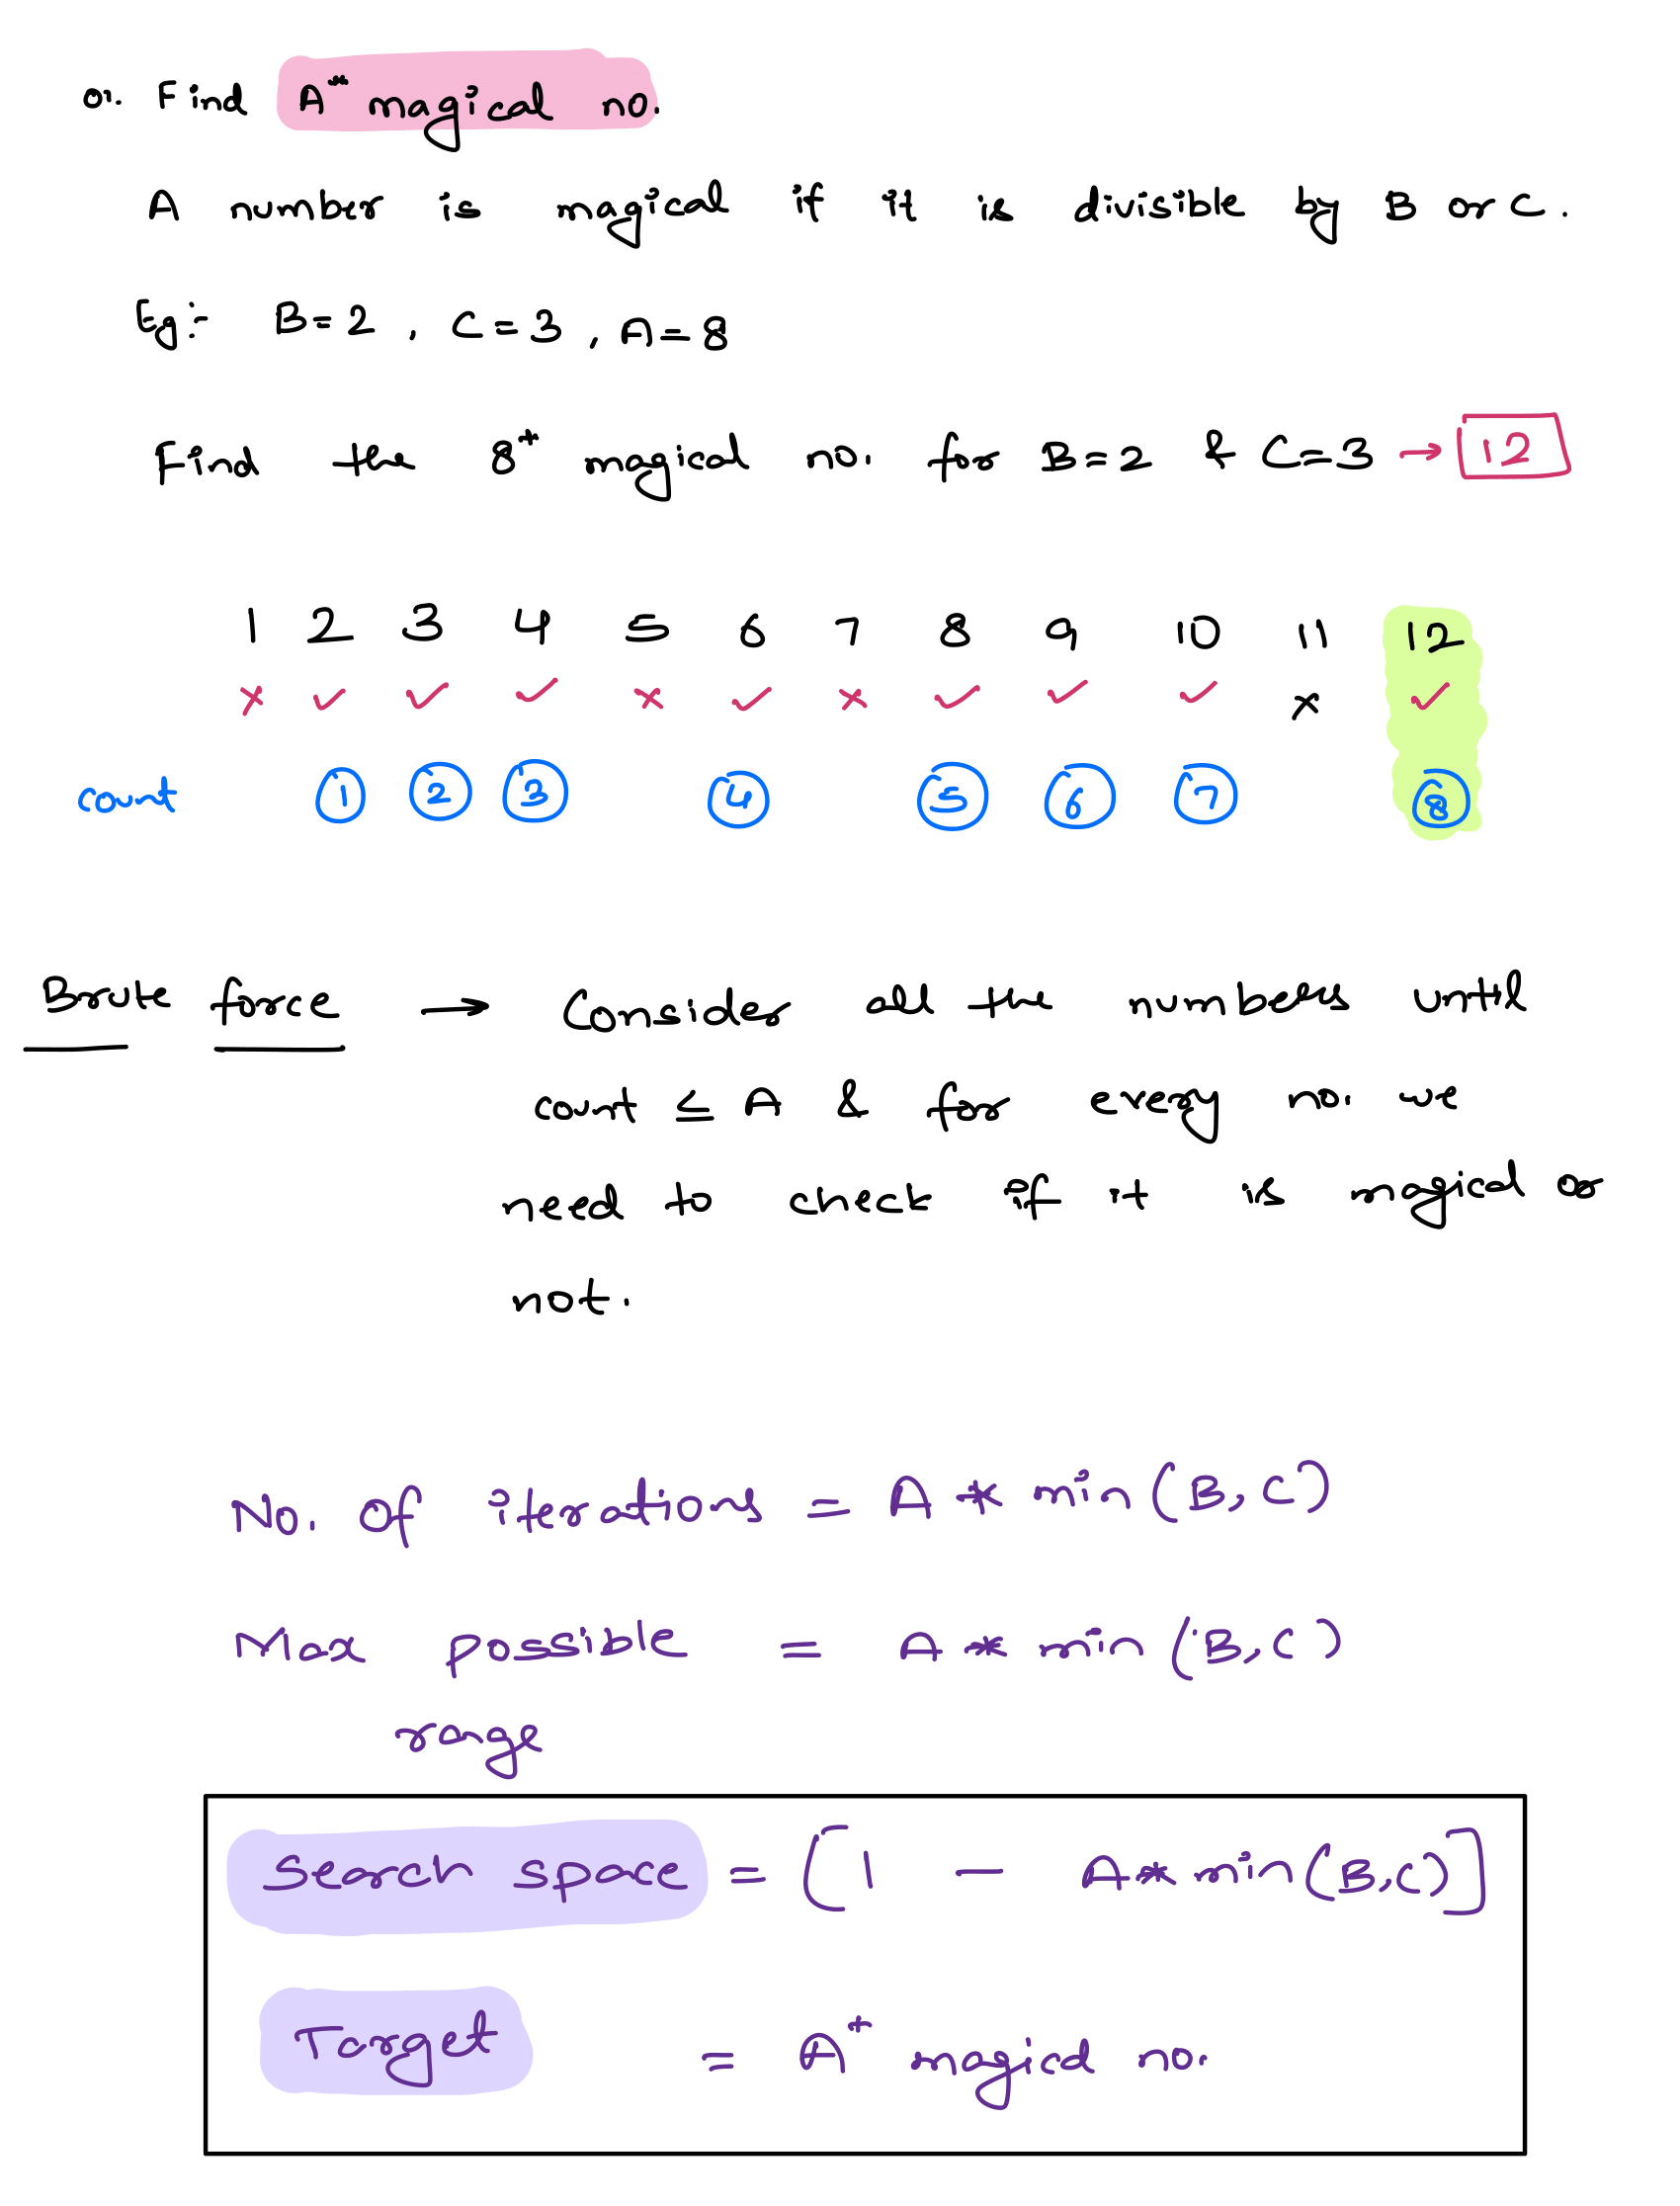 Q. Find Ath magical no.
A number is magical if it is divisible by B or C.
Eg:- B=2 , C=3 , A=8
Find the 8th magical no. for B=2 & C=3 → 12
1 2 3 4 5 6 7 8 9 10 11 12
× ✓ ✓ ✓ × ✓ × ✓ ✓ ✓ × ✓
count 1 2 3 4 5 6 7 8
Brute force → Consider all the numbers until
count ≤ A & for every no. we
need to check if it is magical or
not.
No. of iterations = A * min(B, C)
Max possible = A * min(B, C)
range
Search space = [1 - A * min(B,C)]
Target = Ath magical no.